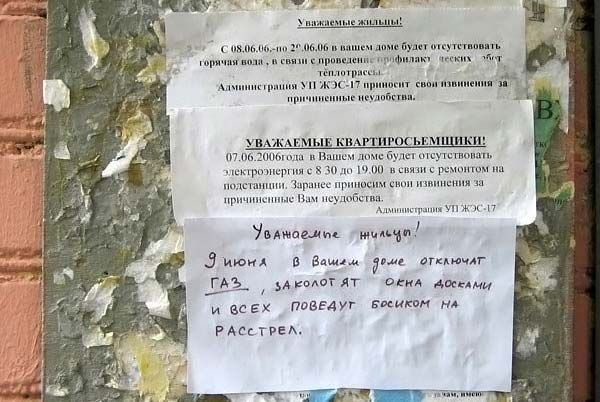 Уважаемые жильцы!
С 08.06.06.-по 20.06.06 в вашем доме будет отсутствовать
горячая вода , в связи с проведение профилакт ческих работ
теплотрассы.
Администрация УП ЖЭС-17 приносит свои извинения за
причиненные неудобства.
УВАЖАЕМЫЕ КВАРТИРОСЬЕМЩИКИ!
07.06.2006года в Вашем доме будет отсутствовать
электроэнергия с 8 30 до 19.00 в связи с ремонтом на
подстанции. Заранее приносим свои извинения за
причиненные Вам неудобства.
Администрация УП ЖЭС-17
Уважаемые жильцы!
9 июня в Вашем доме отключат
ГАЗ , заколотят окна досками
и всех поведут босиком на
расстрел.